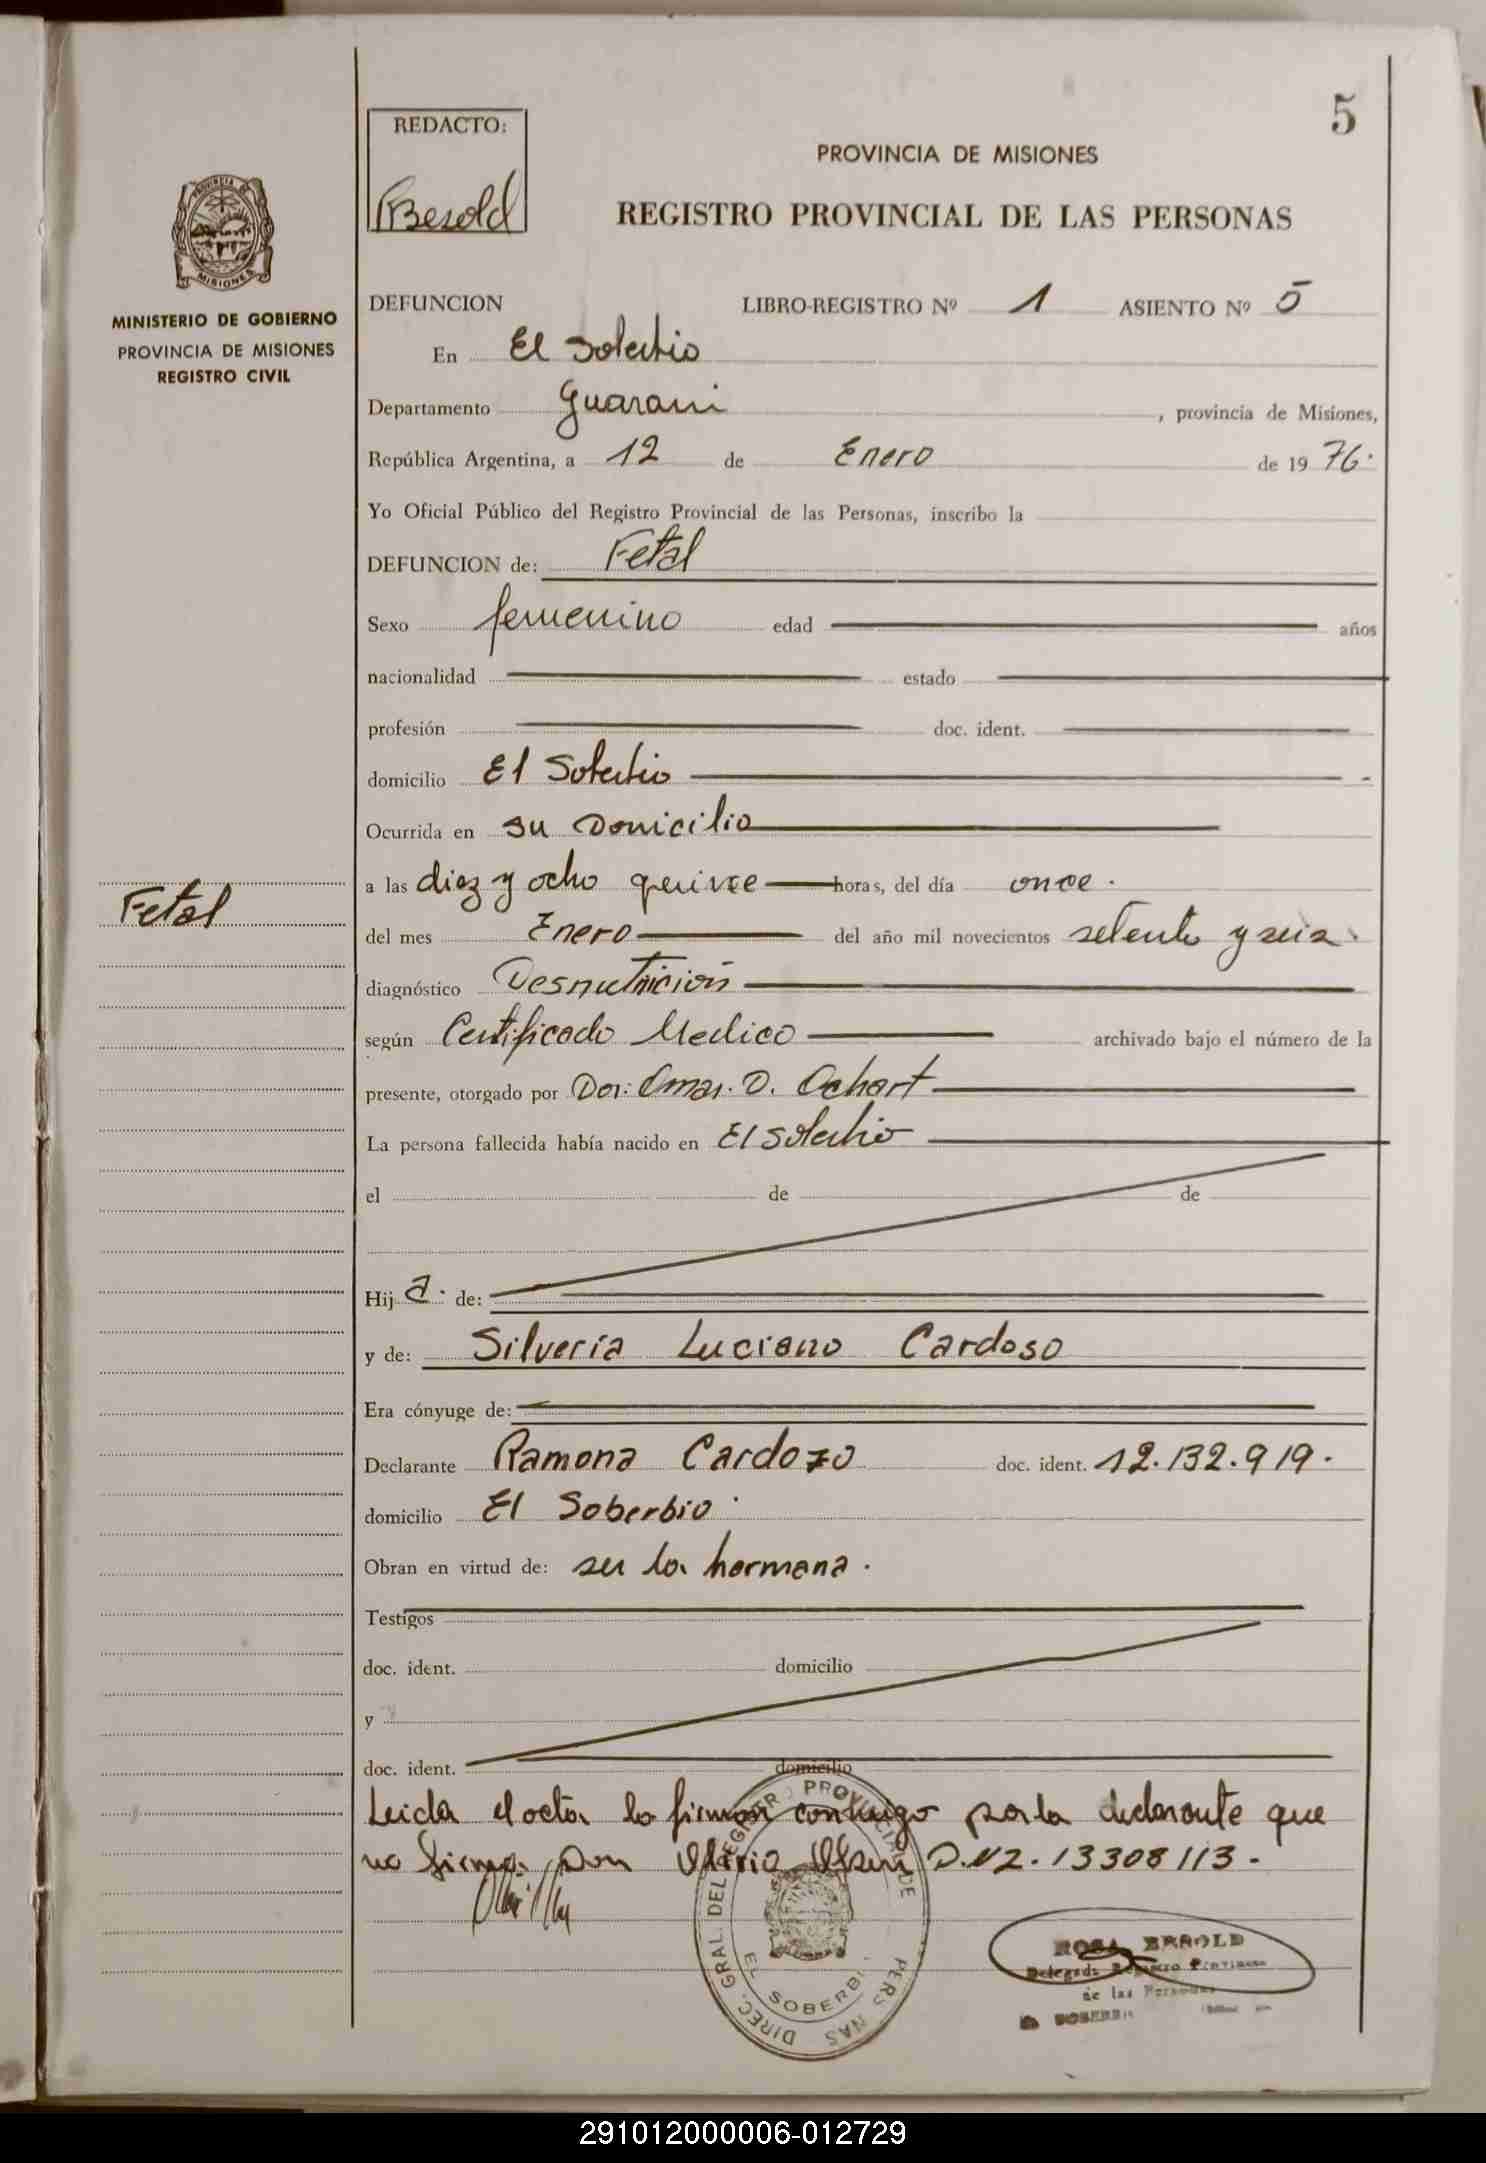 5
REDACTO:
Besold
PROVINCIA DE MISIONES
REGISTRO PROVINCIAL DE LAS PERSONAS
MINISTERIO DE GOBIERNO
PROVINCIA DE MISIONES
REGISTRO CIVIL
DEFUNCION LIBRO-REGISTRO Nº 1 ASIENTO Nº 5
En El Soberbio
Departamento Guarani, provincia de Misiones,
República Argentina, a 12 de Enero de 1976.
Yo Oficial Público del Registro Provincial de las Personas, inscribo la
DEFUNCION de: Fetal
Sexo femenino edad años
nacionalidad estado
profesión doc. ident.
domicilio El Soberbio
Ocurrida en su Domicilio
a las diez y ocho quince horas, del día once.
Fetal
del mes Enero del año mil novecientos setenta y seis.
diagnóstico Desnutrición
según Certificado Medico archivado bajo el número de la
presente, otorgado por Dor. Omar. D. Ochart
La persona fallecida había nacido en El Soberbio
el de de
Hija. de:
y de: Silveria Luciano Cardoso
Era cónyuge de:
Declarante Ramona Cardozo doc. ident. 12.132.919.
domicilio El Soberbio.
Obran en virtud de: ser la hermana.
Testigos
doc. ident. domicilio
y
doc. ident. domicilio
Leida el acta la firman conmigo por la declarante que
no firma, Don D.N.I. 13308113.
DIREC. GRAL. DEL REGISTRO PROVINCIAL DE PERSONAS
EL SOBERBIO
ROSA BESOLD
Delegada Registro Provincial
de las Personas
EL SOBERBIO
291012000006-012729